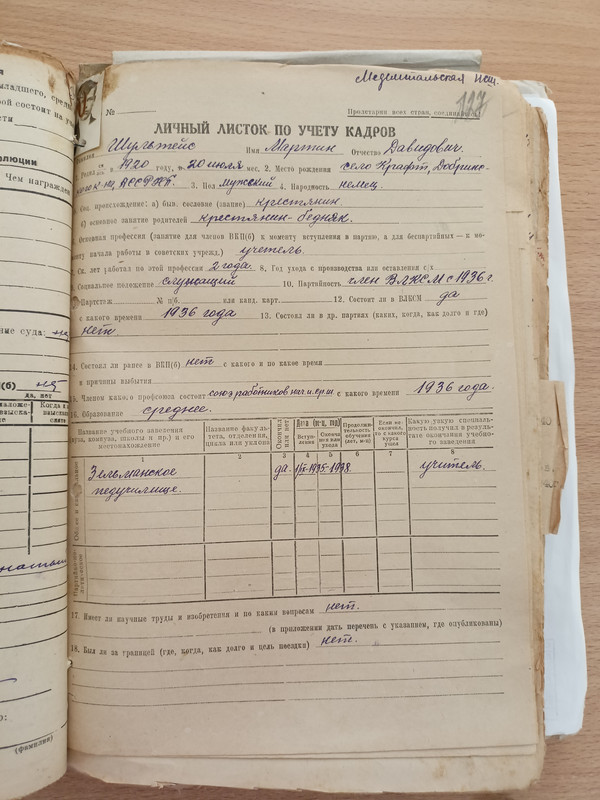 Медемтальская нсш.
127
№
Пролетарии всех стран, соединяйтесь!
ЛИЧНЫЙ ЛИСТОК ПО УЧЕТУ КАДРОВ
Шультейс Имя Мартин Отчество Давидович.
1920 году, 20 июля мес. 2. Место рождения село Крафт, Добринс-
АССРНП. 3. Пол мужской 4. Народность немец.
происхождение: а) быв. сословие (звание) крестьянин.
б) основное занятие родителей крестьянин-бедняк.
Основная профессия (занятие для членов ВКП(б) к моменту вступления в партию, а для беспартийных — к мо-
менту начала работы в советских учрежд.) учитель.
лет работал по этой профессии 2 года. 8. Год ухода с производства или оставления с/х
Социальное положение служащий 10. Партийность член ВЛКСМ с 1936 г.
Партстаж № п/б. или канд. карт. 12. Состоял ли в ВЛКСМ да
с какого времени 1936 года 13. Состоял ли в др. партиях (каких, когда, как долго и где)
нет.
14. Состоял ли ранее в ВКП(б) нет с какого и по какое время
и причины выбытия
15. Членом какого профсоюза состоит союз работников нач. и ср. ш. с какого времени 1936 года.
16. Образование среднее.
Название учебного заведения (вуза, комвуза, школы и пр.) и его местонахождение
Название факультета, отделения, цикла или уклона
Окончил или нет
Дата (м-ц, год)
Вступления
Окончания или ухода
Продолжительность обучения (лет, м-ц)
Если не окончил, то с какого курса ушел
Какую узкую специальность получил в результате окончания учебного заведения
1 2 3 4 5 6 7 8
Зельманское да. 1935-1938. учитель.
педучилище.
17. Имеет ли научные труды и изобретения и по каким вопросам нет.
(в приложении дать перечень с указанием, где опубликованы)
18. Был ли за границей (где, когда, как долго и цель поездки) нет.
младшего, средн
рой состоит на уч
ности
олюции
Чем награжден
ние суда:
(б)
да, нет
Когда и
(Фамилия)